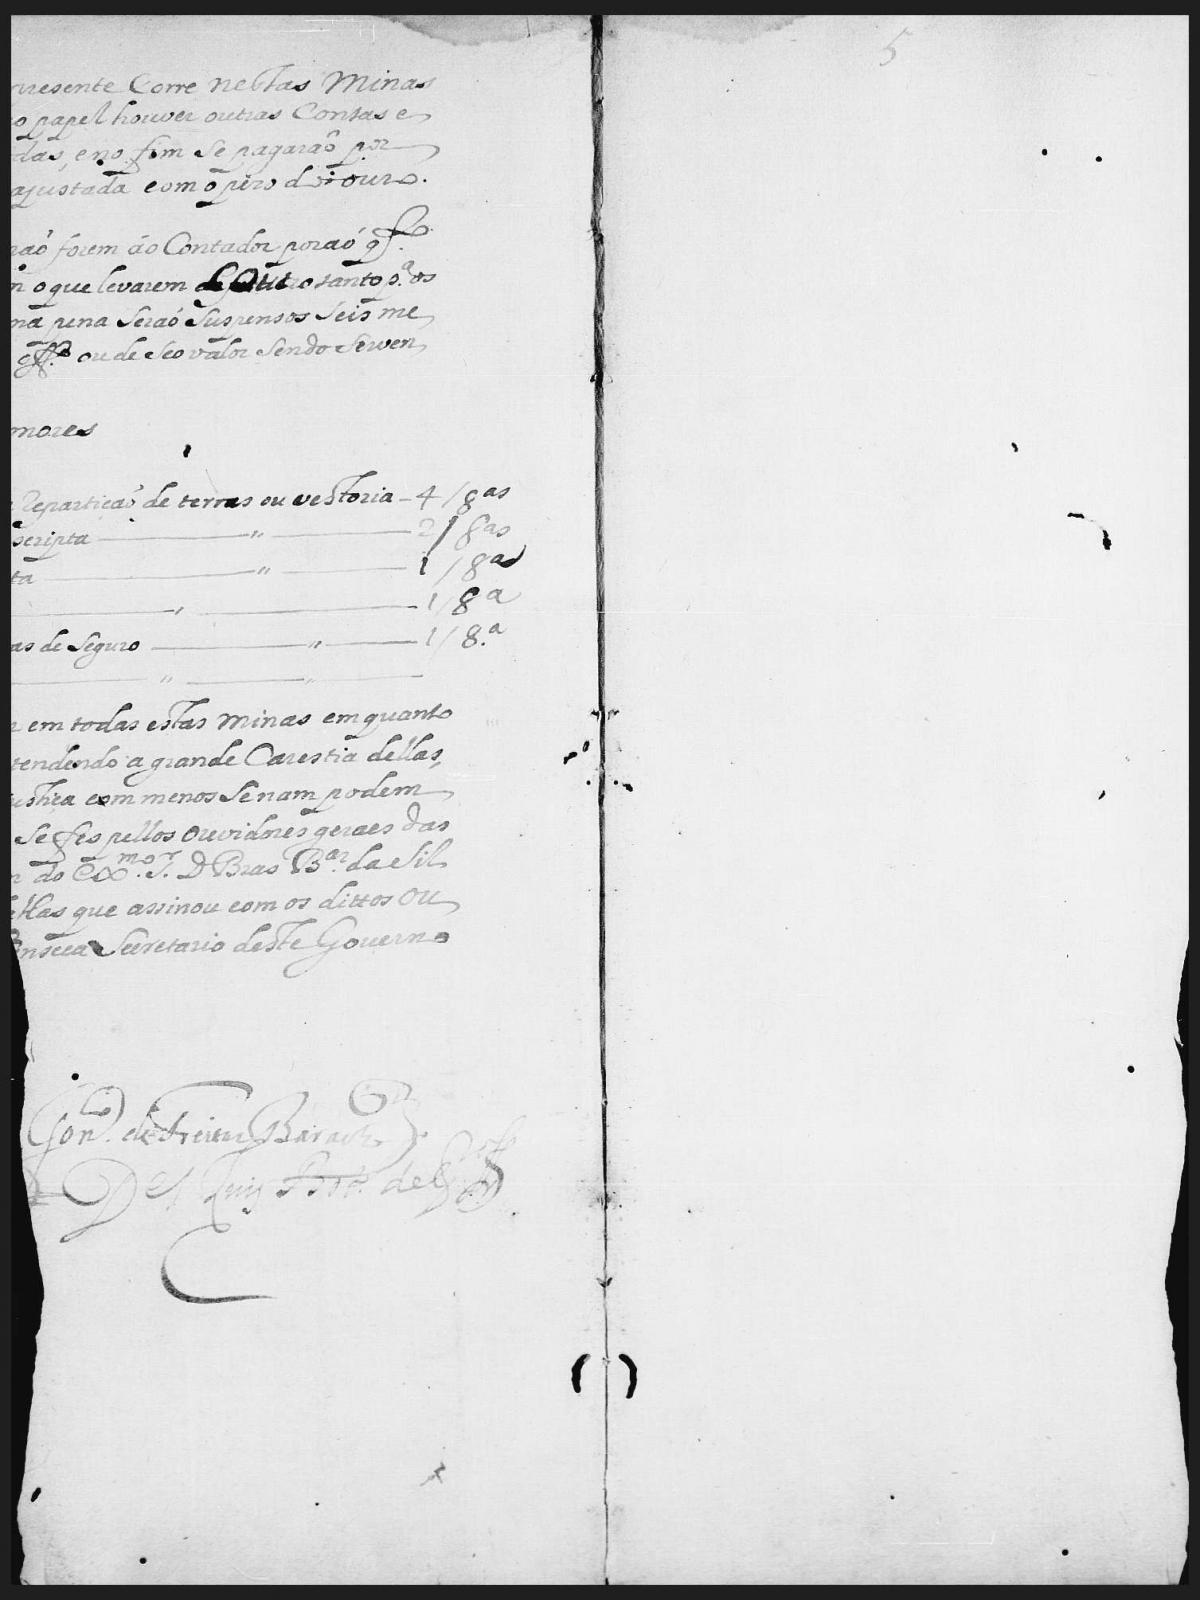 presente Corre nestas Minas
o papel houver outras Contas e
das, e no fim se pagaraõ por
ajustada com o pezo do ouro.
naõ forem ao Contador poraõ o q̃
o que levarem outro tanto p.ª os
ma pena Seraõ Suspensos Seis me
ou de Seo valor Sendo Serven
mores
Repartiçaõ de terras ou vestoria — 4 / 8as
scripta — " — 2 / 8as
ta — " — 1 / 8a
— " — 1 / 8a
as de Seguro — " — 1 / 8.a
— " — " —
em todas estas Minas em quanto
tendendo a grande Carestia dellas,
justiça com menos Se nam podem
Se fes pellos Ouvidores geraes das
do Exmo. Sr. D Bras Bar. da Sil
ellas que assinou com os dittos Ou
onseca Secretario deste Governo
Gon.º de Freitas Baracho
De Luis Bot.º de
5